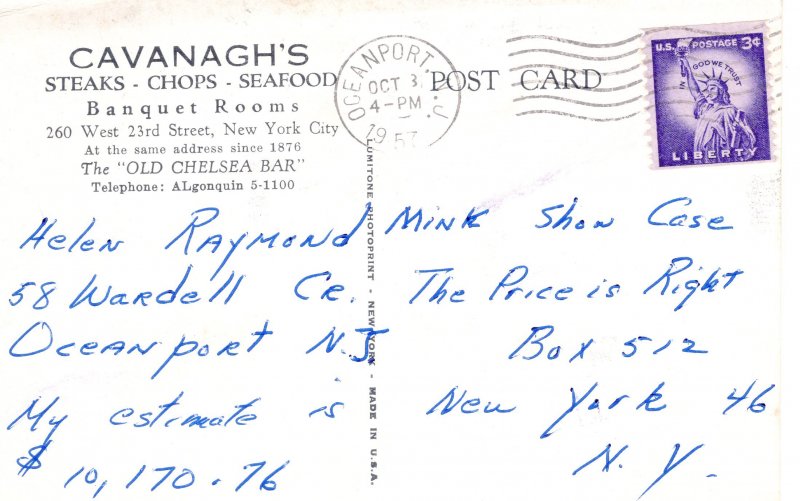 CAVANAGH'S
STEAKS - CHOPS - SEAFOOD
Banquet Rooms
260 West 23rd Street, New York City
At the same address since 1876
The "OLD CHELSEA BAR"
Telephone: ALgonquin 5-1100
OCEANPORT N.J.
OCT 3
4-PM
1957
POST CARD
U.S. POSTAGE 3¢
IN GOD WE TRUST
LIBERTY
LUMITONE PHOTOPRINT - NEW YORK - MADE IN U.S.A.
Helen Raymond
58 Wardell Cr.
Oceanport N.J
My estimate is
$ 10,170.76
Mink Show Case
The Price is Right
Box 512
New York 46
N.Y.